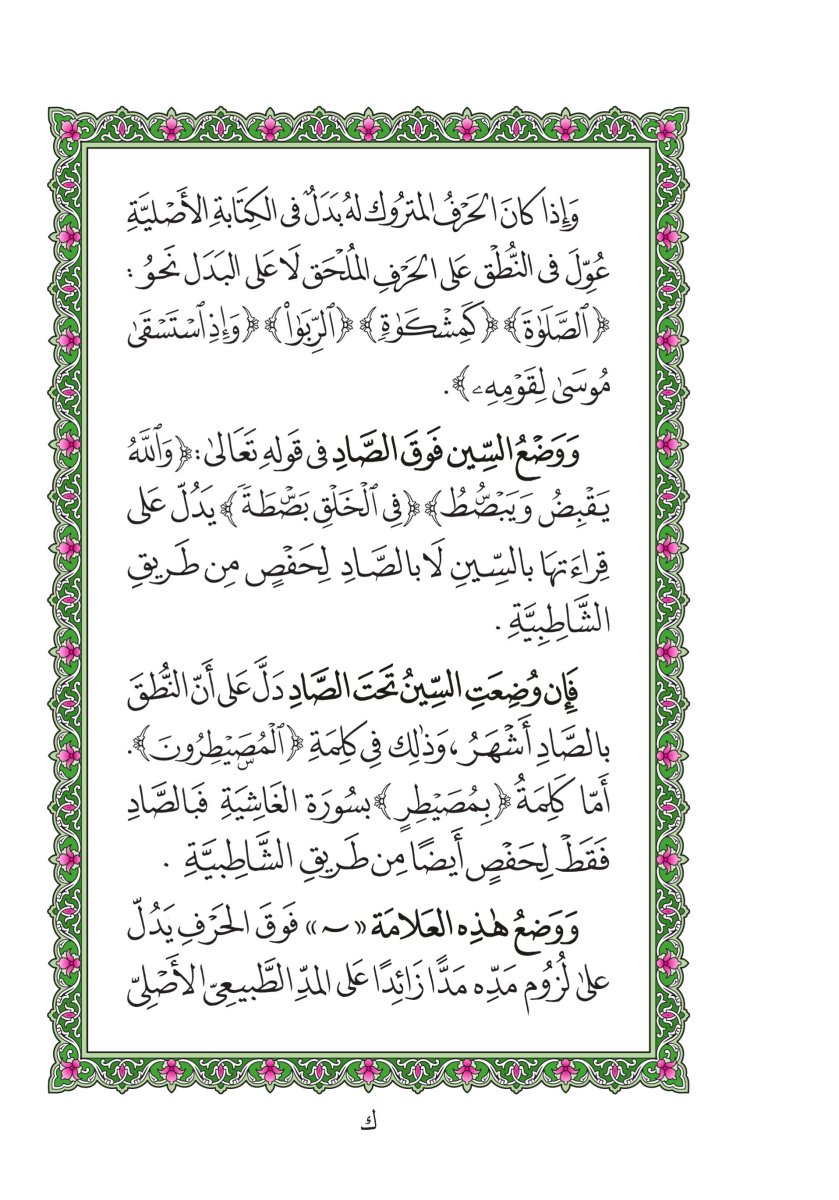 وَإِذا كانَ الحَرْفُ المتروك لهُ بَدَلٌ فى الكِتَابةِ الأَصْليَّةِ
عُوِّلَ فى النُّطْق عَلى الحَرْفِ المُلْحَق لَا عَلى البَدَل نَحوُ :
﴿ٱلصَّلَوٰةَ﴾ ﴿كَمِشْكَوٰةٖ﴾ ﴿ٱلرِّبَوٰاْ﴾ ﴿وَإِذِ ٱسْتَسْقَىٰ
مُوسَىٰ لِقَوْمِهِۦ﴾ .
وَوَضْعُ السِّين فَوقَ الصَّادِ فى قَولهِ تَعَالىٰ : ﴿وَٱللَّهُ
يَقْبِضُ وَيَبْصُۜطُ﴾ ﴿فِى ٱلْخَلْقِ بَصْۜطَةٗ﴾ يَدُلّ عَلى
قِراءَتهَا بالسِّينِ لَا بالصَّادِ لِحَفْصٍ مِن طَريقِ
الشَّاطِبِيَّةِ .
فَإِن وُضِعَتِ السِّينُ تَحتَ الصَّادِ دَلَّ عَلى أَنّ النُّطْقَ
بالصَّادِ أَشْهَرُ ، وَذٰلِك فى كَلِمَةِ ﴿ٱلْمُصَۣيْطِرُونَ﴾ .
أَمّا كَلِمَةُ ﴿بِمُصَيْطِرٍ﴾ بسُورَة الغَاشِيَةِ فَبالصَّادِ
فَقَطْ لِحَفْصٍ أَيضًا مِن طَريقِ الشَّاطِبيَّةِ .
وَوَضعُ هٰذِه العَلامَة «~» فَوقَ الحَرْفِ يَدُلّ
علىٰ لُزُوم مَدّه مَدًّا زَائِدًا عَلى المدّ الطَّبيعىّ الأَصْلِىّ
ك